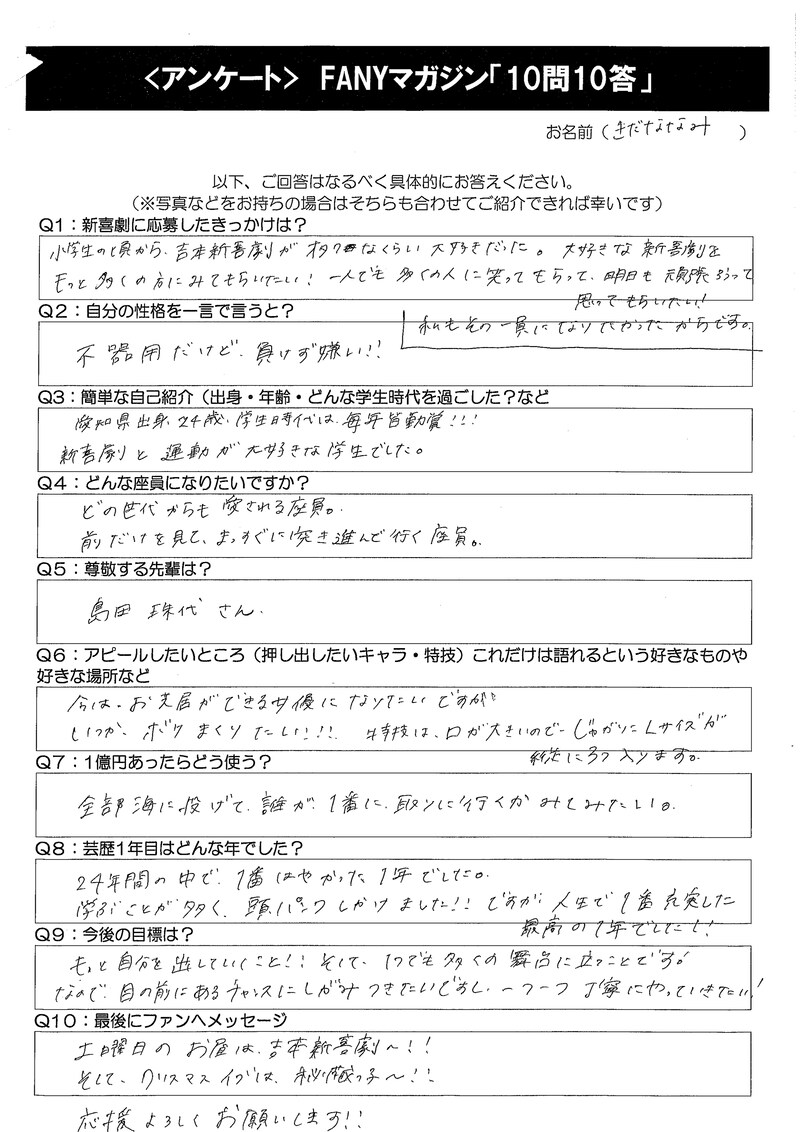 <アンケート> FANYマガジン「10問10答」
お名前(きだななみ)
以下、ご回答はなるべく具体的にお答えください。
(※写真などをお持ちの場合はそちらも合わせてご紹介できれば幸いです)
Q1:新喜劇に応募したきっかけは?
小学生の頃から、吉本新喜劇がオタクなくらい大好きだった。大好きな新喜劇を
もっと多くの方にみてもらいたい!一人でも多くの人に笑ってもらって、明日も頑張ろうって
思ってもらいたい!
私もその一員になりたかったからです。
Q2:自分の性格を一言で言うと?
不器用だけど、負けず嫌い!!
Q3:簡単な自己紹介(出身・年齢・どんな学生時代を過ごした?など
愛知県出身、24歳、学生時代は、毎年皆勤賞!!!
新喜劇と運動が大好きな学生でした。
Q4:どんな座員になりたいですか?
どの世代からも愛される座員。
前だけを見て、まっすぐに突き進んで行く座員。
Q5:尊敬する先輩は?
島田珠代さん.
Q6:アピールしたいところ(押し出したいキャラ・特技)これだけは語れるという好きなものや
好きな場所など
今は、お芝居ができる女優になりたいですが
いつか、ボケまくりたい!!! 特技は、口が大きいのでじゃがりこLサイズが
縦に3つ入ります。
Q7:1億円あったらどう使う?
全部海に投げて、誰が、1番に、取りに行くかみてみたい。
Q8:芸歴1年目はどんな年でした?
24年間の中で、1番はやかった1年でした。
学ぶことが多く、頭パンクしかけました!!ですが、人生で1番充実した
最高の1年でした!!
Q9:今後の目標は?
もっと自分を出していくこと!!そして、1つでも多くの舞台に立つことです。
なので、目の前にあるチャンスにしがみつきたいですし、一つ一つ丁寧にやっていきたい!
Q10:最後にファンへメッセージ
土曜日のお昼は、吉本新喜劇〜!!
そして、クリスマスイブは、秘蔵っ子〜!!
応援よろしくお願いします!!